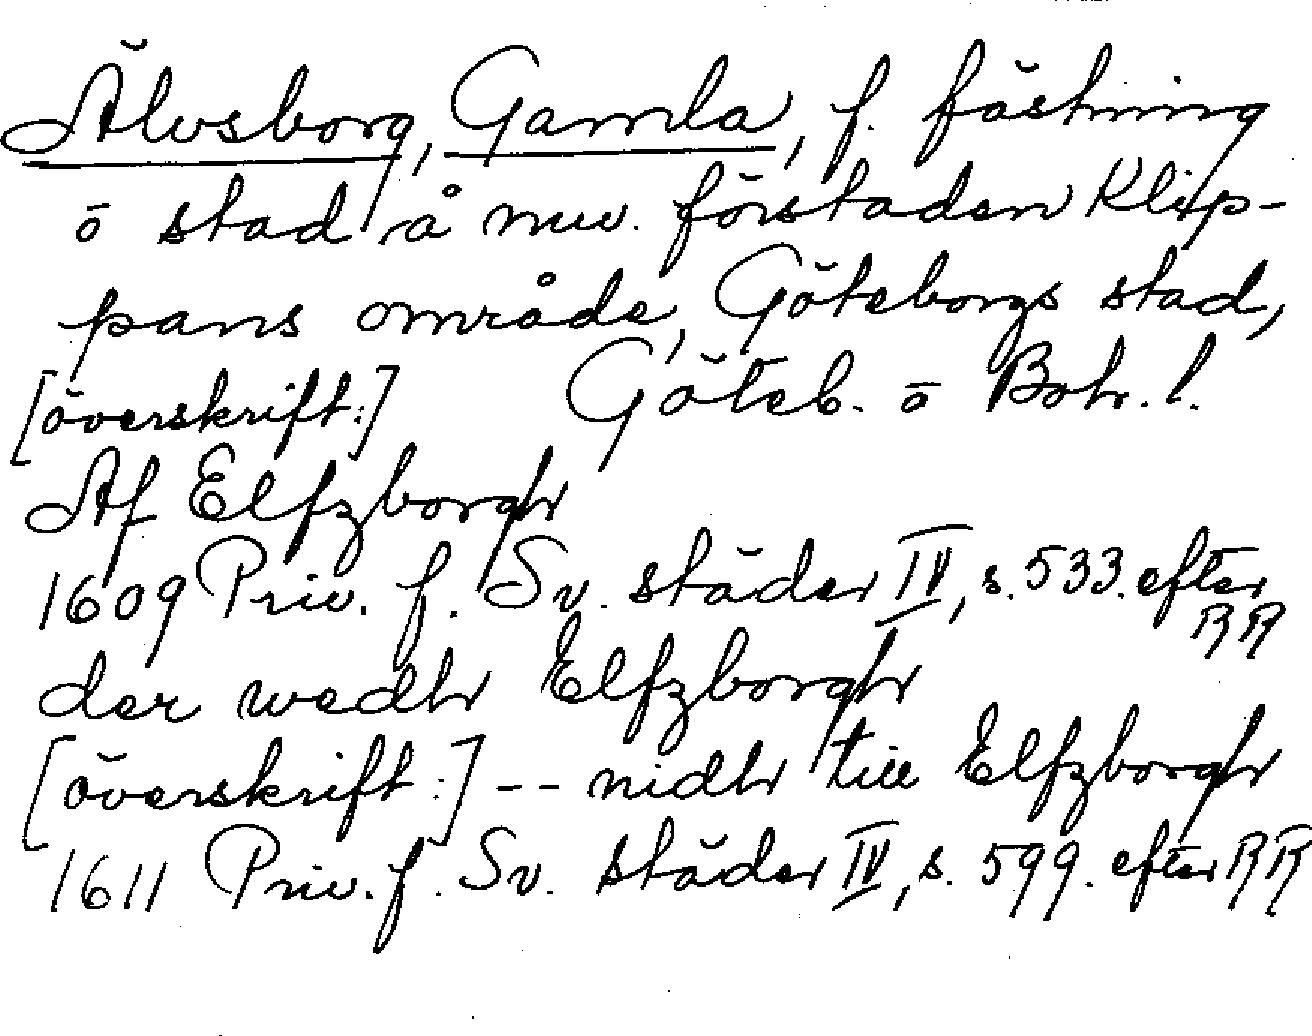 Älvsborg, Gamla, f. fästning
o stad å nuv. förstaden Klip-
pans område, Göteborgs stad,
[överskrift:] Göteb. o Boh. l.
Af Elfzborgh
1609 Priv. f. Sv. städer IV, s. 533. efter
RR
der wedh Elfzborgh
[överskrift:] -- nidh till Elfzborgh
1611 Priv. f. Sv. städer IV, s. 599. efter RR